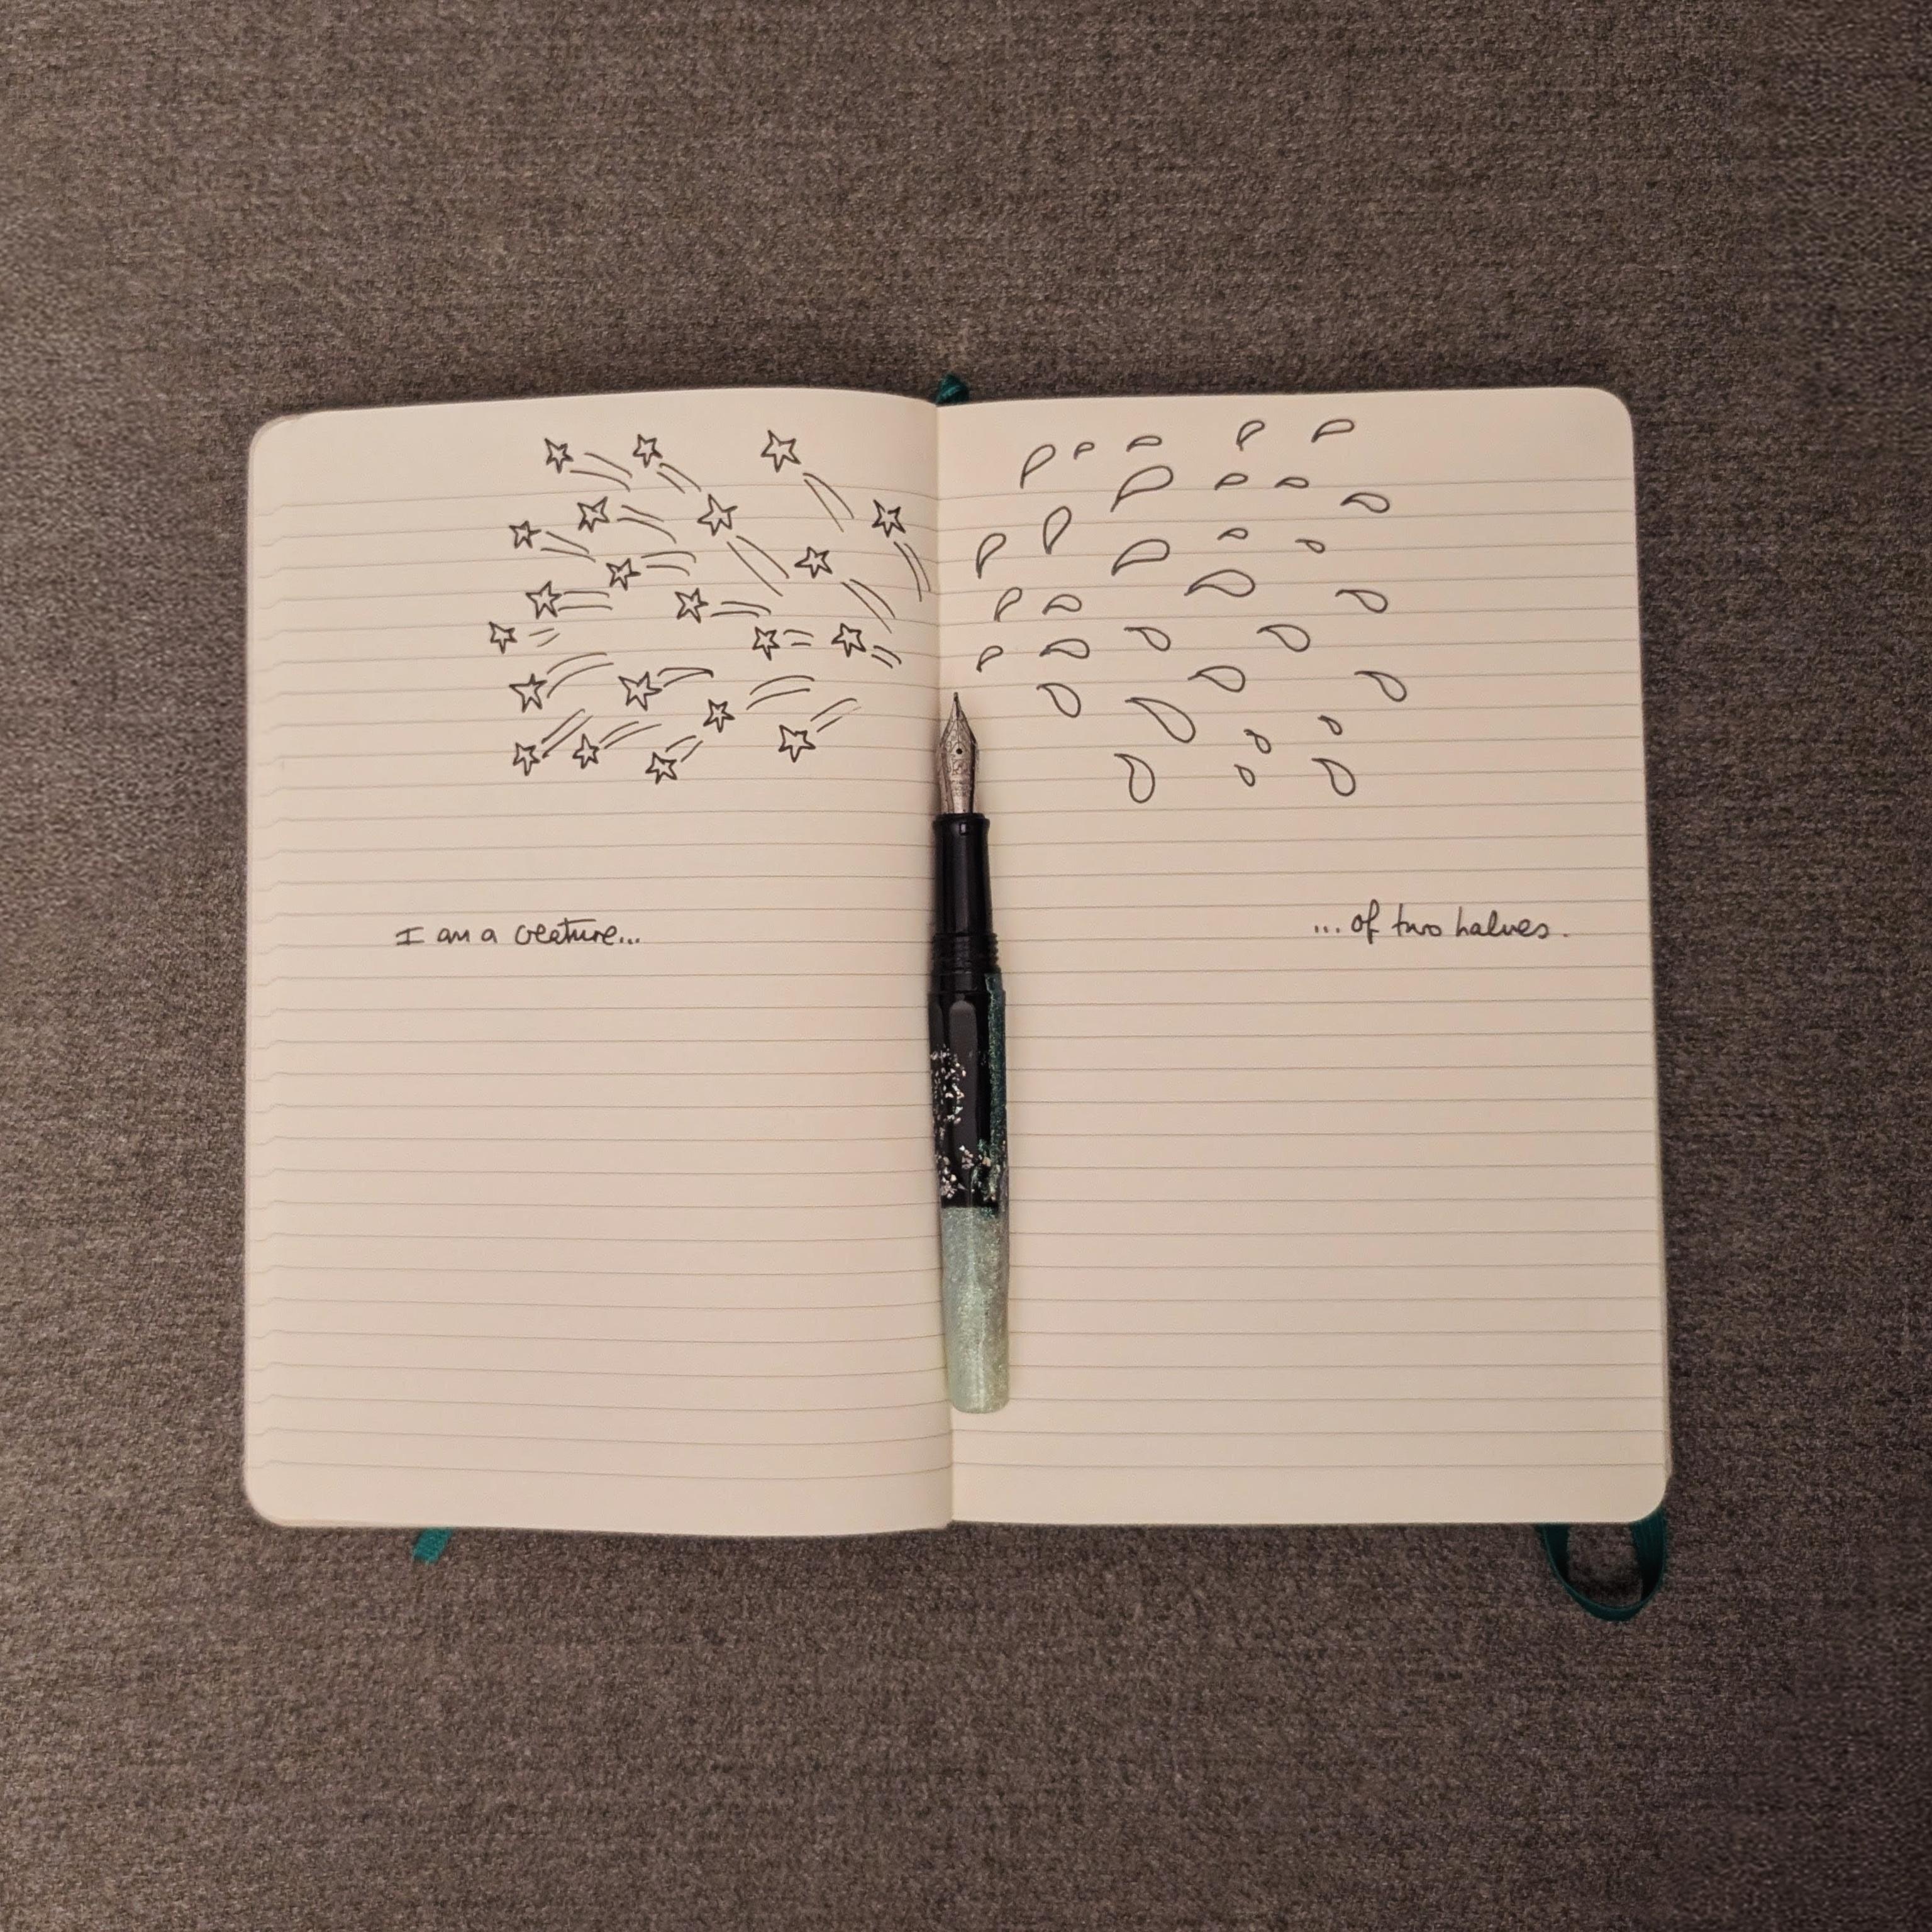 I am a creature...
... of two halves.